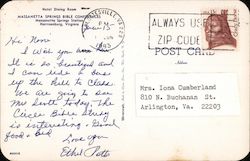 Hotel Dining Room
MASSANETTA SPRINGS BIBLE CONFERENCE
Massanetta Springs Station
Harrisonburg, Virginia
PM
ALWAYS USE
ZIP CODE
POST CARD
Hi Noni
I wish you were
It is so beautiful and
I can ride a bus
up the hill to class.
We are going to
Mr. South today. The
Circle Bible Study
is interesting. Good
food & bed
Love you
Ethel Potts
Mrs. Iona Cumberland
810 N. Buchanan St.
Arlington, Va. 22203